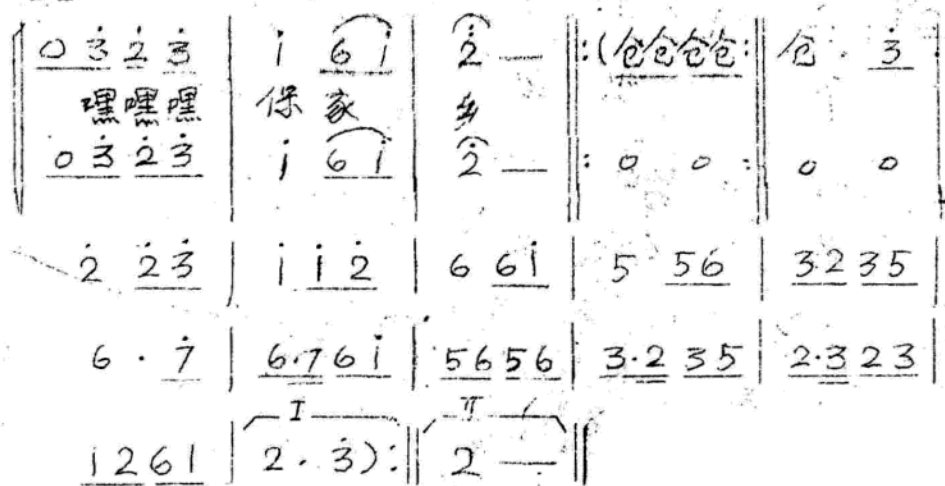 0 3̇ 2̇ 3̇ | i̇ 6 i̇ | 2̇ — ‖: (仓仓仓仓 :‖ 仓 . 3̇ |
嘿嘿嘿 保家 乡
0 3̇ 2̇ 3̇ | i̇ 6 i̇ | 2̇ — ‖: 0 0 :‖ 0 0 |
2̇ 2̇ 3̇ | i̇ i̇ 2̇ | 6 6 i̇ | 5 5 6 | 3 2 3 5 |
6 · 7̇ | 6·7 6 i̇ | 5 6 5 6 | 3·2 3 5 | 2·3 2 3 |
i̇ 2 6 1 | I 2 · 3̇) :‖ II 2 — ‖